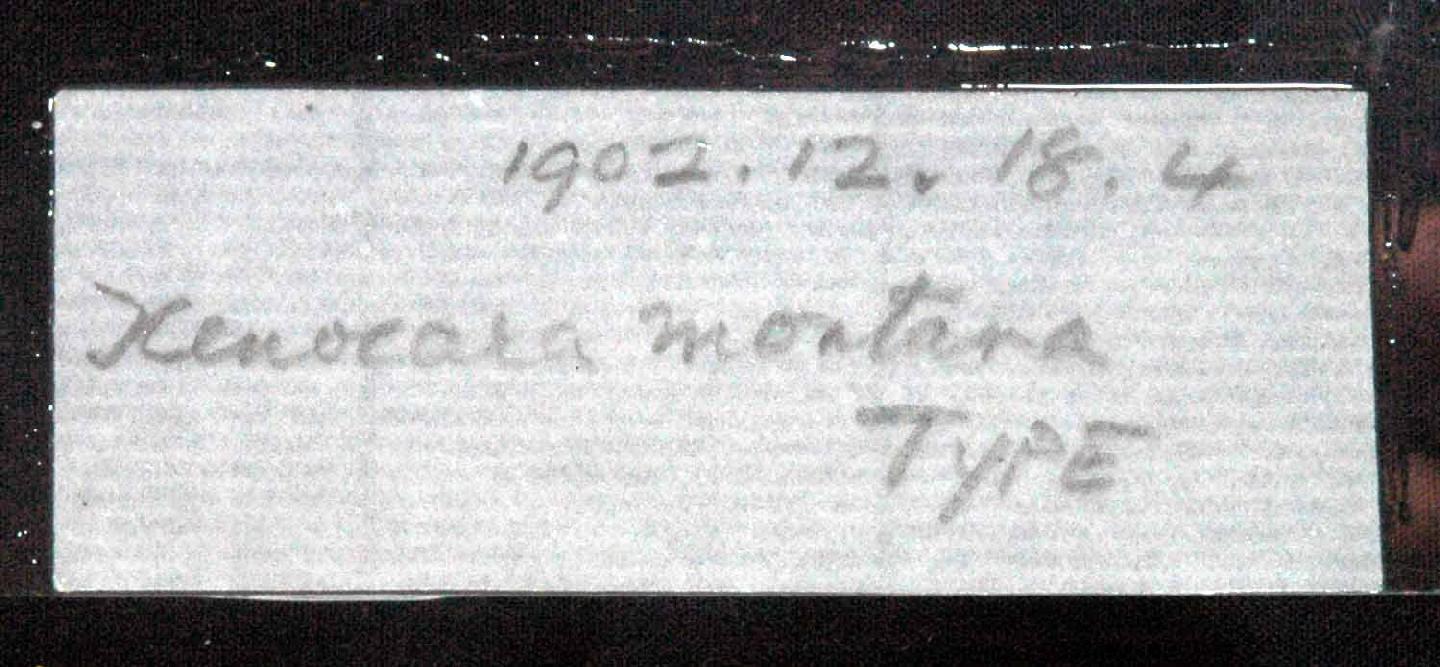 1902.12.18.4
Xenocara montana
TYPE